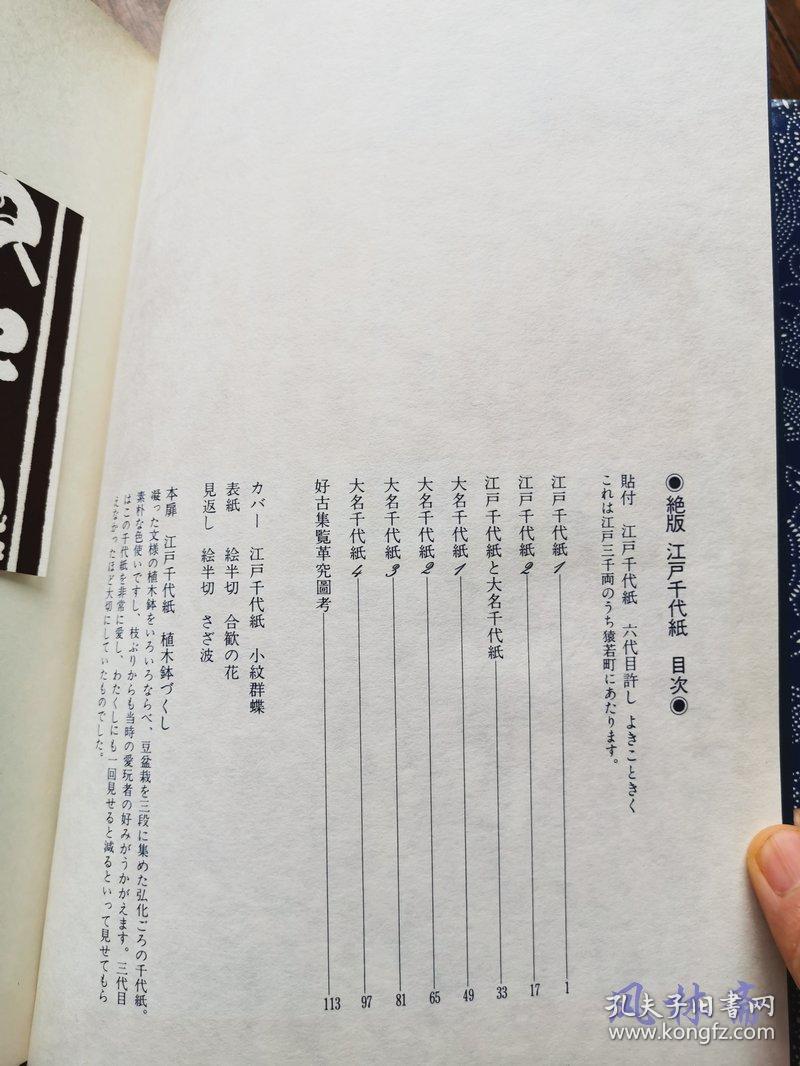 ◉絶版 江戸千代紙 目次◉
貼付 江戸千代紙 六代目許し よきことさく
これは江戸三千両のうち猿若町にあたります。
江戸千代紙1 1
江戸千代紙2 17
江戸千代紙と大名千代紙 33
大名千代紙1 49
大名千代紙2 65
大名千代紙3 81
大名千代紙4 97
好古集覧革究圖考 113
カバー 江戸千代紙 小紋群蝶
表紙 絵半切 合歓の花
見返し 絵半切 さざ波
本扉 江戸千代紙 植木鉢づくし
凝った文様の植木鉢をいろいろならべ、豆盆栽を三段に集めた弘化ごろの千代紙。
素朴な色使いですし、枝ぶりからも当時の愛玩者の好みがうかがえます。三代目
はこの千代紙を非常に愛し、わたくしにも一回見せると減るといって見せてもら
えなかったほど大切にしていたものでした。
风林斋
孔夫子旧书网
www.kongfz.com